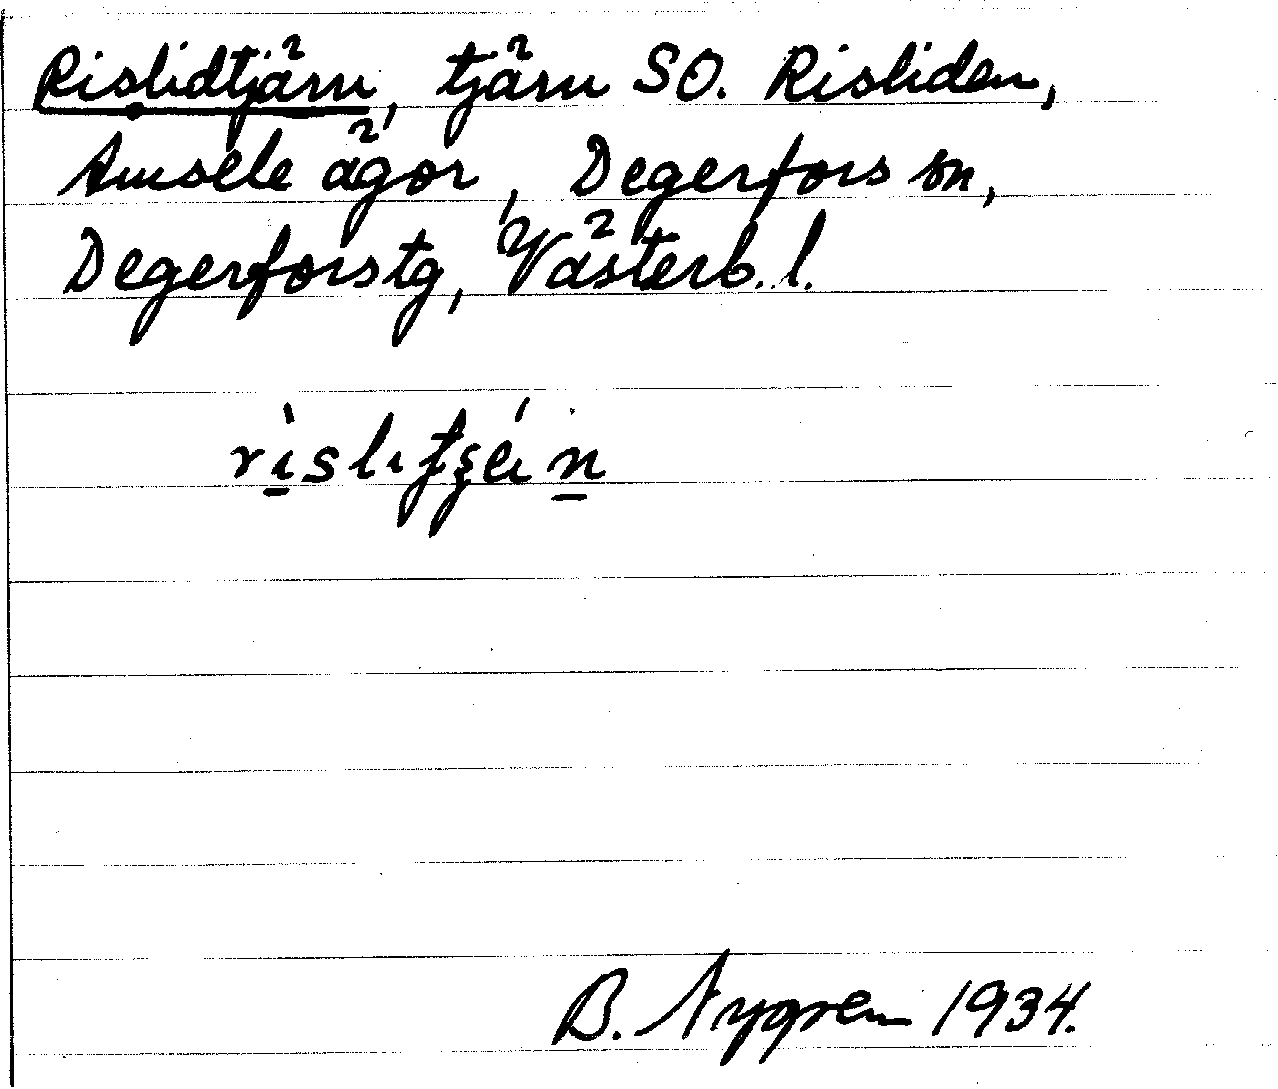 Rislidtjärn, tjärn SO. Risliden,
Åmsele ägor, Degerfors sn,
Degerforstg, Västerb. l.
B. Nygren 1934.